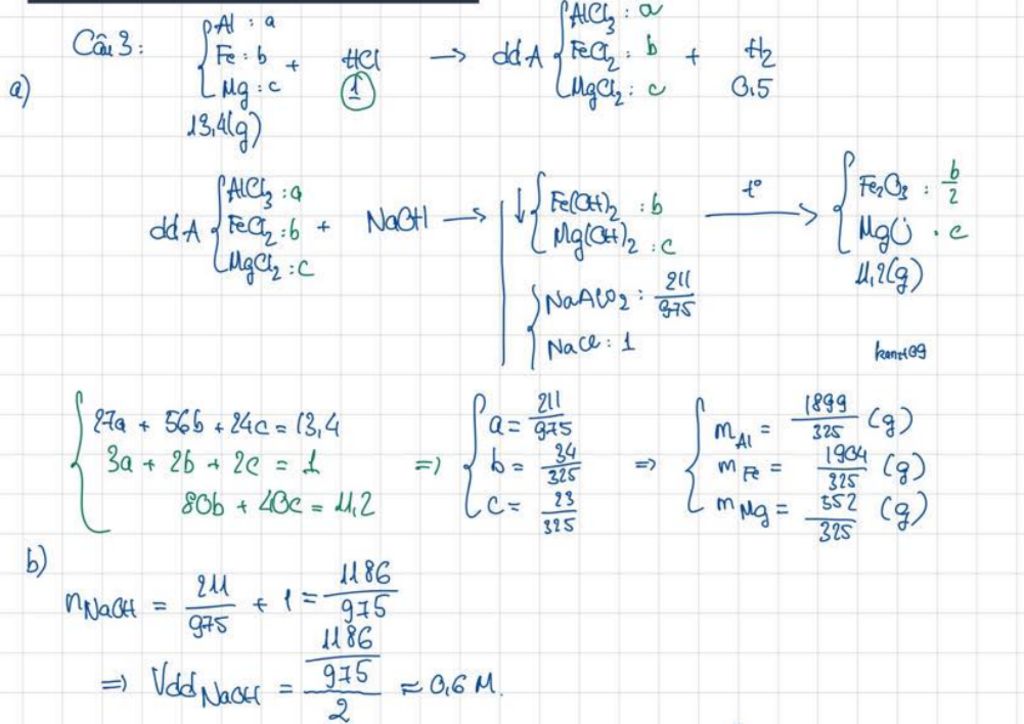 Câu 3:
a)
{ Al : a
Fe : b
Mg : c
13,4(g)
+ HCl
1
→ ddA { AlCl3 : a
FeCl2 : b
MgCl2 : c
+ H2
0,5
ddA { AlCl3 : a
FeCl2 : b
MgCl2 : c
+ NaOH →
↓ { Fe(OH)2 : b
Mg(OH)2 : c
{ NaAlO2 : 211/975
NaCl : 1
t° →
{ Fe2O3 : b/2
MgO : c
11,2(g)
{ 27a + 56b + 24c = 13,4
3a + 2b + 2c = 1
80b + 40c = 11,2
=> { a = 211/975
b = 34/325
c = 23/325
=> { mAl = 1899/325 (g)
mFe = 1904/325 (g)
mMg = 552/325 (g)
b)
nNaOH = 211/975 + 1 = 1186/975
=> VddNaOH = (1186/975)/2 ≈ 0,6 M.